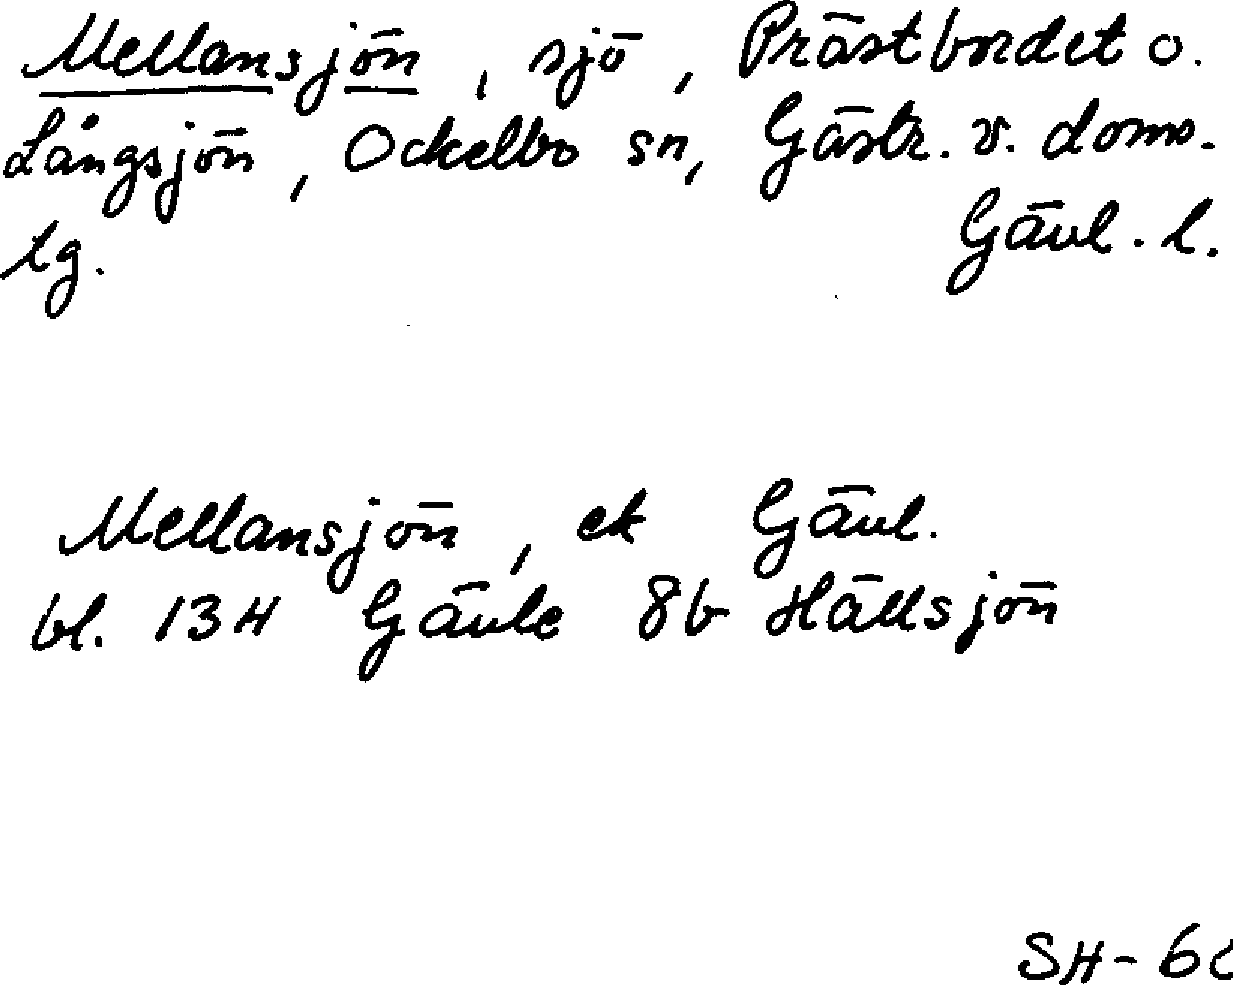 Mellansjön, sjö, Prästbordet o.
Långsjön, Ockelbo sn, Gästr. v. doms-
tg. Gävl. l.
Mellansjön, ek Gävl.
bl. 13H Gävle 8b Hällsjön
SH-6